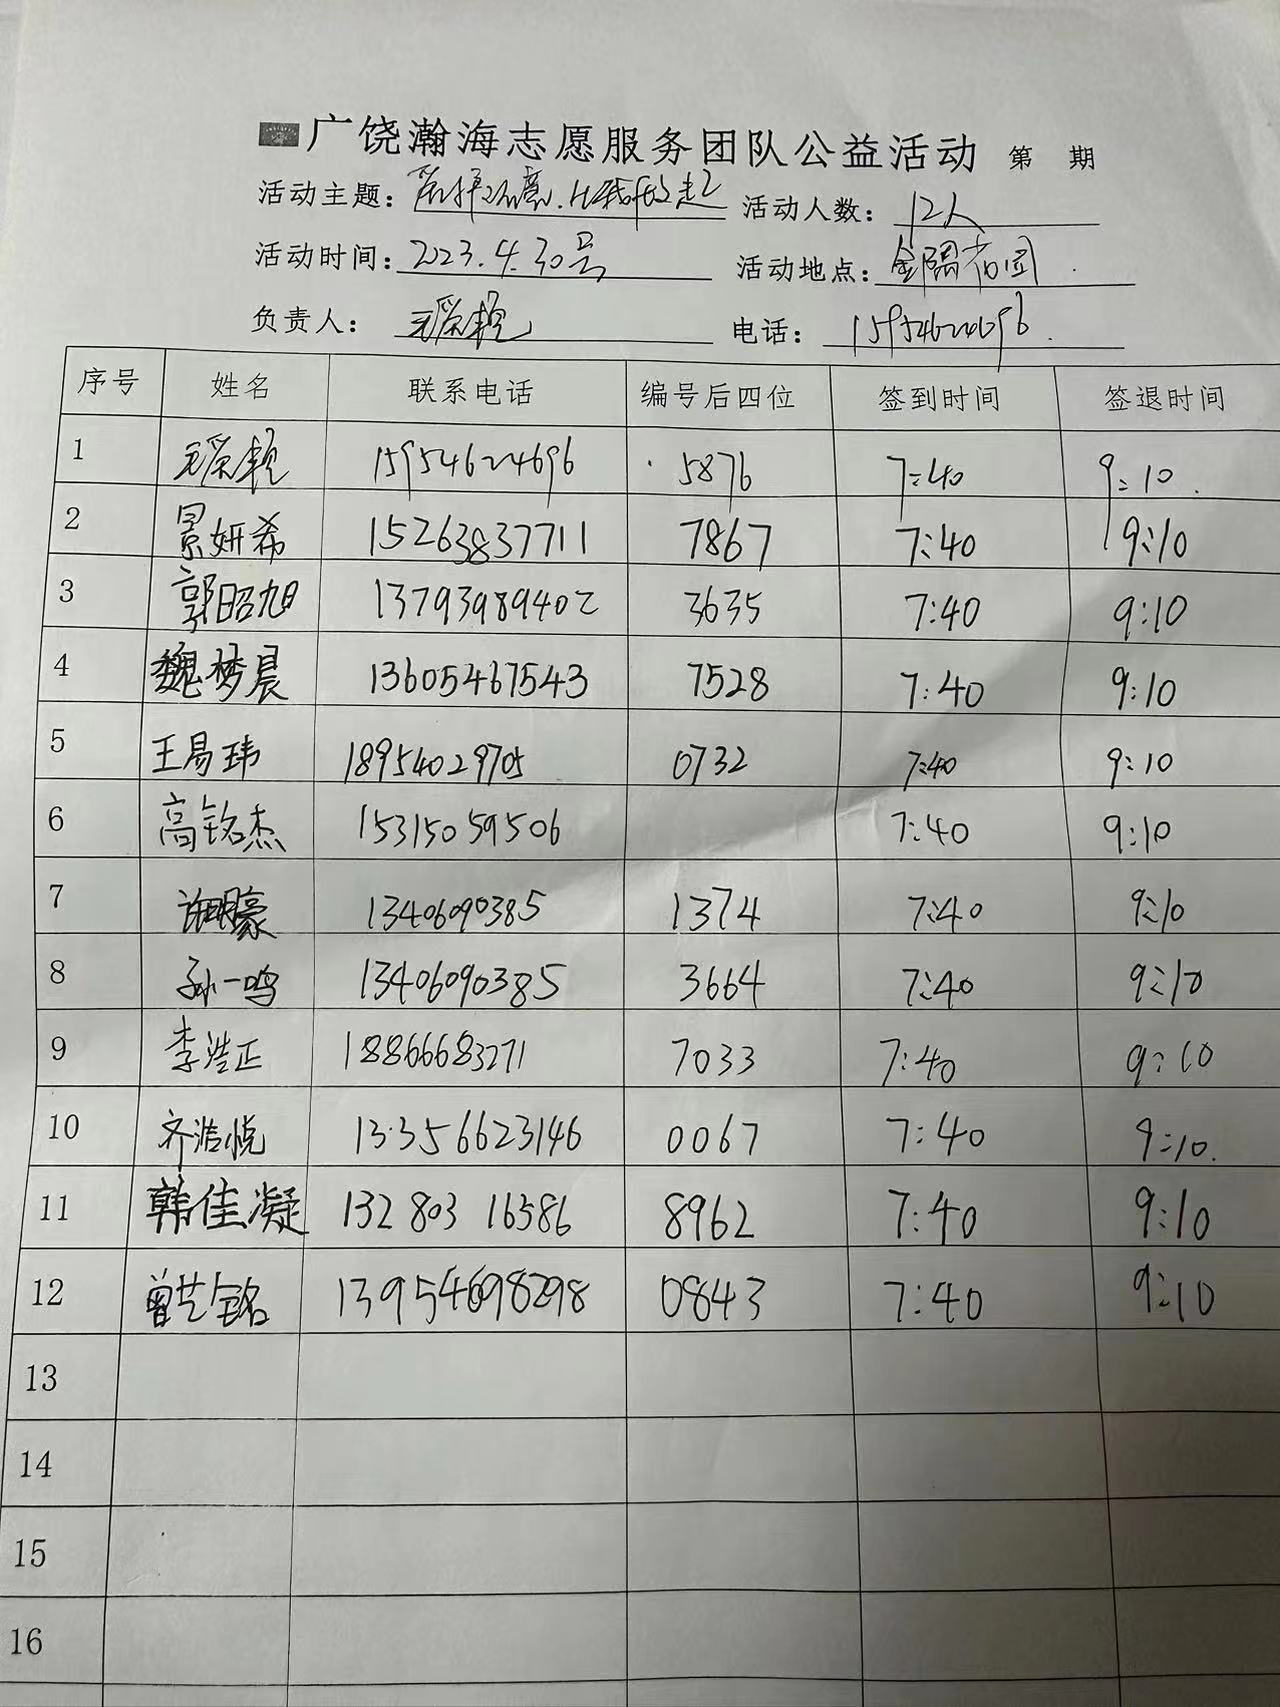 广饶瀚海志愿服务团队公益活动 第 期
活动主题: 活动人数: 12人
活动时间: 2023.4.30号 活动地点:
负责人: 电话: 15954624696
序号 姓名 联系电话 编号后四位 签到时间 签退时间
1 15954624696 5876 7:40 9:10
2 景妍希 15263837711 7867 7:40 9:10
3 郭昭旭 13793989402 3635 7:40 9:10
4 魏梦晨 13605467543 7528 7:40 9:10
5 王易玮 18954029705 0732 7:40 9:10
6 高铭杰 15315059506 7:40 9:10
7 13406090385 1374 7:40 9:10
8 孙一鸣 13406090385 3664 7:40 9:10
9 李浩正 18866683271 7033 7:40 9:10
10 齐浩悦 13356623146 0067 7:40 9:10
11 韩佳凝 132803 16586 8962 7:40 9:10
12 曾艺铭 13954698298 0843 7:40 9:10
13
14
15
16